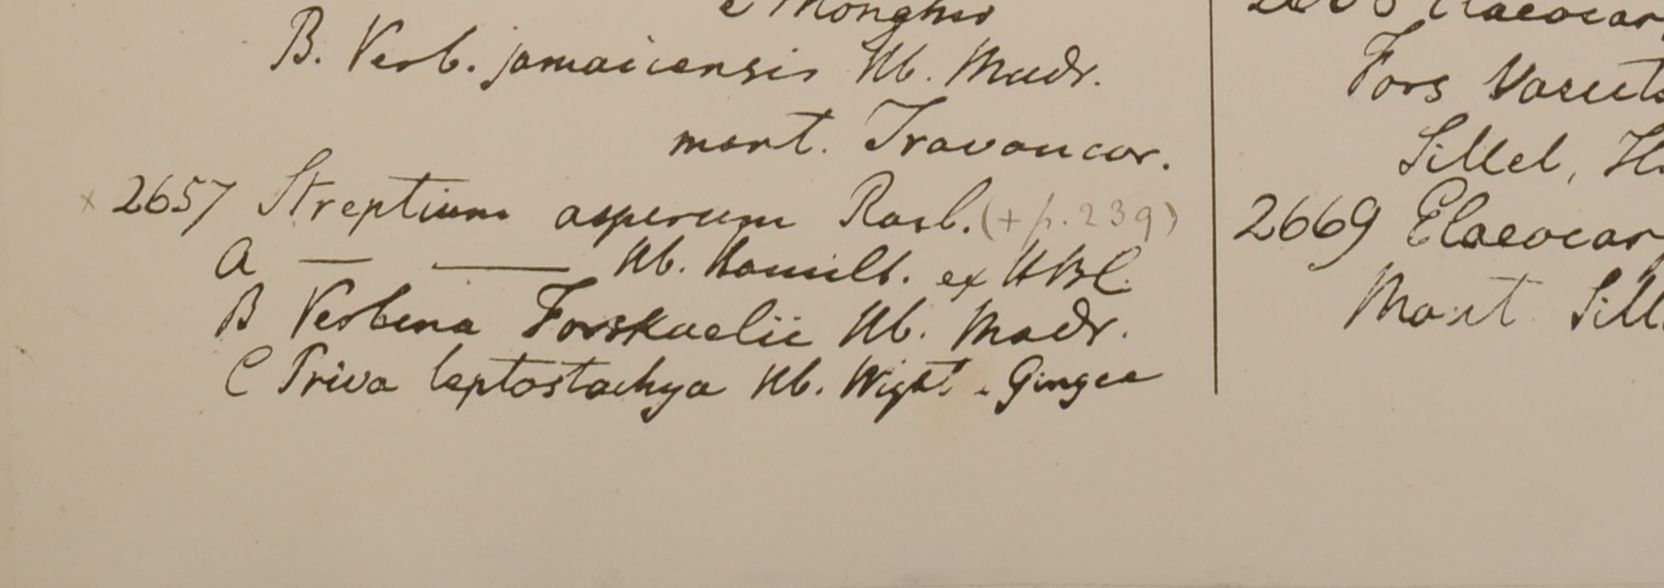 e Monghir
B. Verb. jamaicensis Hb. Madr.
mont. Travancor.
x 2657 Streptium asperum Roxb. (+ p. 239)
A — — Hb. Hamilt. ex HBC.
B Verbena Forskaelii Hb. Madr.
C Priva leptostachya Hb. Wight - Gingee
Elaeocar
Fors
Sillet, H
2669 Elaeocar
Mont Sill